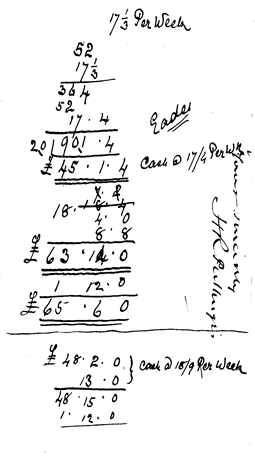 17 1/3 Per Week
52
17 1/3
364
52
17 . 4
20 | 901 . 4
£ 45 . 1 . 4
Eades
Cash @ 17/4 Per Wk
18 .
4 . 0
8 . 8
£ 63 . 14 . 0
1 12 . 0
£ 65 . 6 . 0
£ 48 . 2 . 0
13 . 0
Cash @ 18/9 Per Week
48 . 15 . 0
1 . 12 . 0
Yours sincerely